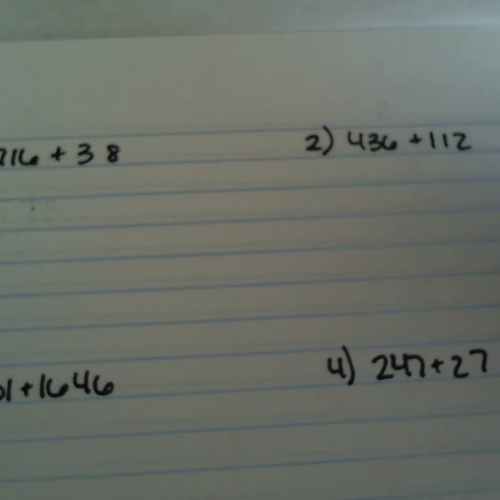 716 + 38
2) 436 + 112
01 + 1646
4) 247 + 27